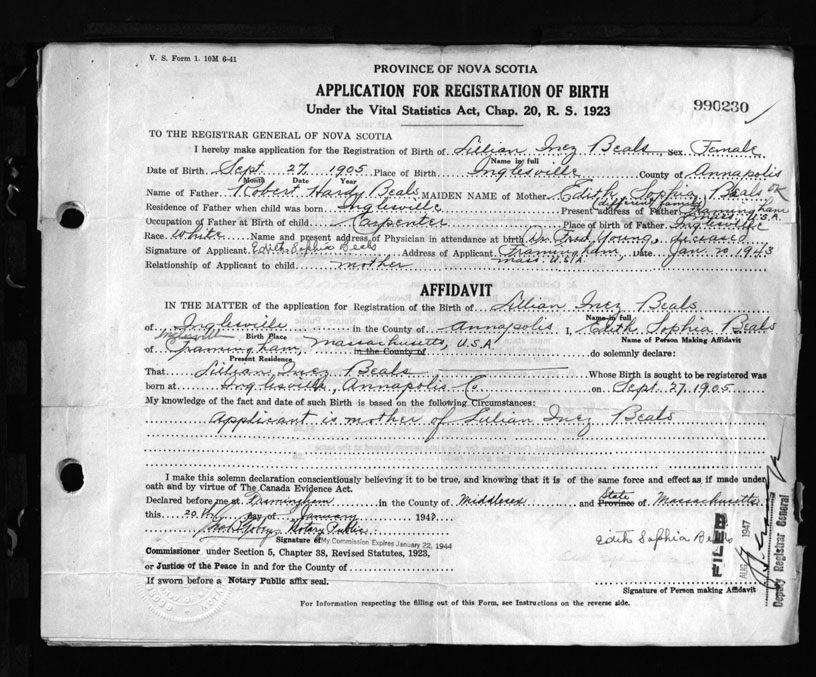 V. S. Form 1. 10M 6-41
PROVINCE OF NOVA SCOTIA
APPLICATION FOR REGISTRATION OF BIRTH
Under the Vital Statistics Act, Chap. 20, R. S. 1923
990230
TO THE REGISTRAR GENERAL OF NOVA SCOTIA
I hereby make application for the Registration of Birth of Lillian Inez Beals Sex Female
Name in full
Date of Birth Sept. 27 1905 Place of Birth Inglesville County of Annapolis
Month Date Year
Name of Father Robert Hardy Beals MAIDEN NAME of Mother Edith Sophia Beals OK
Residence of Father when child was born Inglesville Present address of Father Framingham Mass. U.S.A.
Occupation of Father at Birth of child Carpenter Place of birth of Father Inglesville
Race White Name and present address of Physician in attendance at birth Dr. Fred Young, deceased
Signature of Applicant Edith Sophia Beals Address of Applicant Framingham, Mass. U.S.A. Date Jan. 20 1943
Relationship of Applicant to child mother
AFFIDAVIT
IN THE MATTER of the application for Registration of the Birth of Lillian Inez Beals
Name in full
of Inglesville in the County of Annapolis I, Edith Sophia Beals
Birth Place Name of Person Making Affidavit
Inglesville
of Framingham, Massachusetts, U.S.A. in the County of do solemnly declare:
Present Residence
That Lillian Inez Beals Whose Birth is sought to be registered was
born at Inglesville, Annapolis Co. on Sept. 27, 1905
My knowledge of the fact and date of such Birth is based on the following Circumstances:
Applicant is mother of Lillian Inez Beals
I make this solemn declaration conscientiously believing it to be true, and knowing that it is of the same force and effect as if made under
oath and by virtue of The Canada Evidence Act.
State
Declared before me at Framingham in the County of Middlesex and Province of Massachusetts
this 20th day of January 194
Notary Public
Signature of My Commission Expires January 22, 1944
Edith Sophia Beals
Commissioner under Section 5, Chapter 38, Revised Statutes, 1923,
or Justice of the Peace in and for the County of
If sworn before a Notary Public affix seal.
Signature of Person making Affidavit
For Information respecting the filling out of this Form, see Instructions on the reverse side.
FILED
AUG 1947
Deputy Registrar General